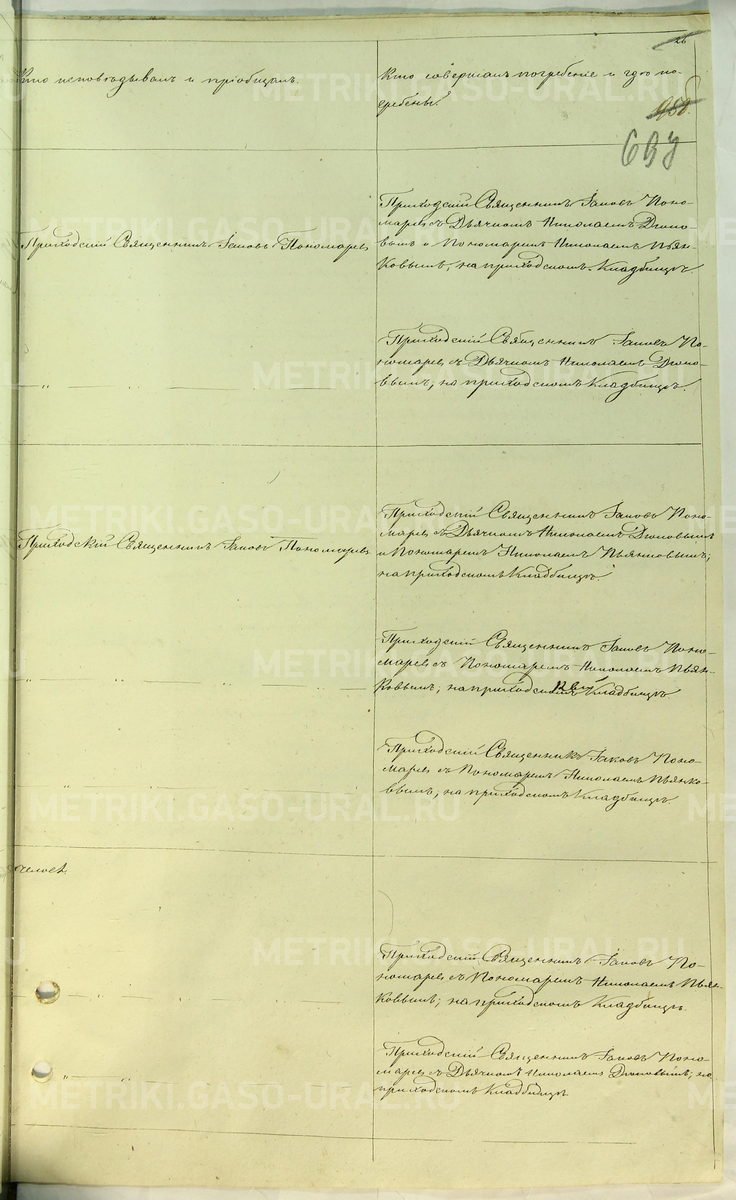 26
Кто исповѣдывалъ и пріобщалъ.
Кто совершалъ погребеніе и гдѣ по-
гребены.
958.
697
Приходскій Священникъ Іаковъ Пономаревъ
Приходскій Священникъ Іаковъ Поно-
маревъ съ Дьячкомъ Николаемъ
и Пономаремъ Николаемъ Пьян-
ковымъ, на приходскомъ Кладбищѣ
Приходскій Священникъ Іаковъ По-
номаревъ съ Дьячкомъ Николаемъ
на приходскомъ Кладбищѣ.
Приходскій Священникъ Іаковъ Пономаревъ
Приходскій Священникъ Іаковъ Поно-
маревъ съ Дьячкомъ Николаемъ
и Пономаремъ Николаемъ Пьянковымъ,
на приходскомъ Кладбищѣ
Приходскій Священникъ Іаковъ Поно-
маревъ съ Пономаремъ Николаемъ Пьян-
ковымъ, на приходскомъ Кладбищѣ
Приходскій Священникъ Іаковъ Поно-
маревъ съ Пономаремъ Николаемъ Пьянко-
вымъ, на приходскомъ Кладбищѣ
Приходскій Священникъ Іаковъ По-
номаревъ съ Пономаремъ Николаемъ Пьян-
ковымъ, на приходскомъ Кладбищѣ.
Приходскій Священникъ Іаковъ Поно-
маревъ съ Дьячкомъ Николаемъ на
приходскомъ Кладбищѣ.
METRIKI.GASO-URAL.RU